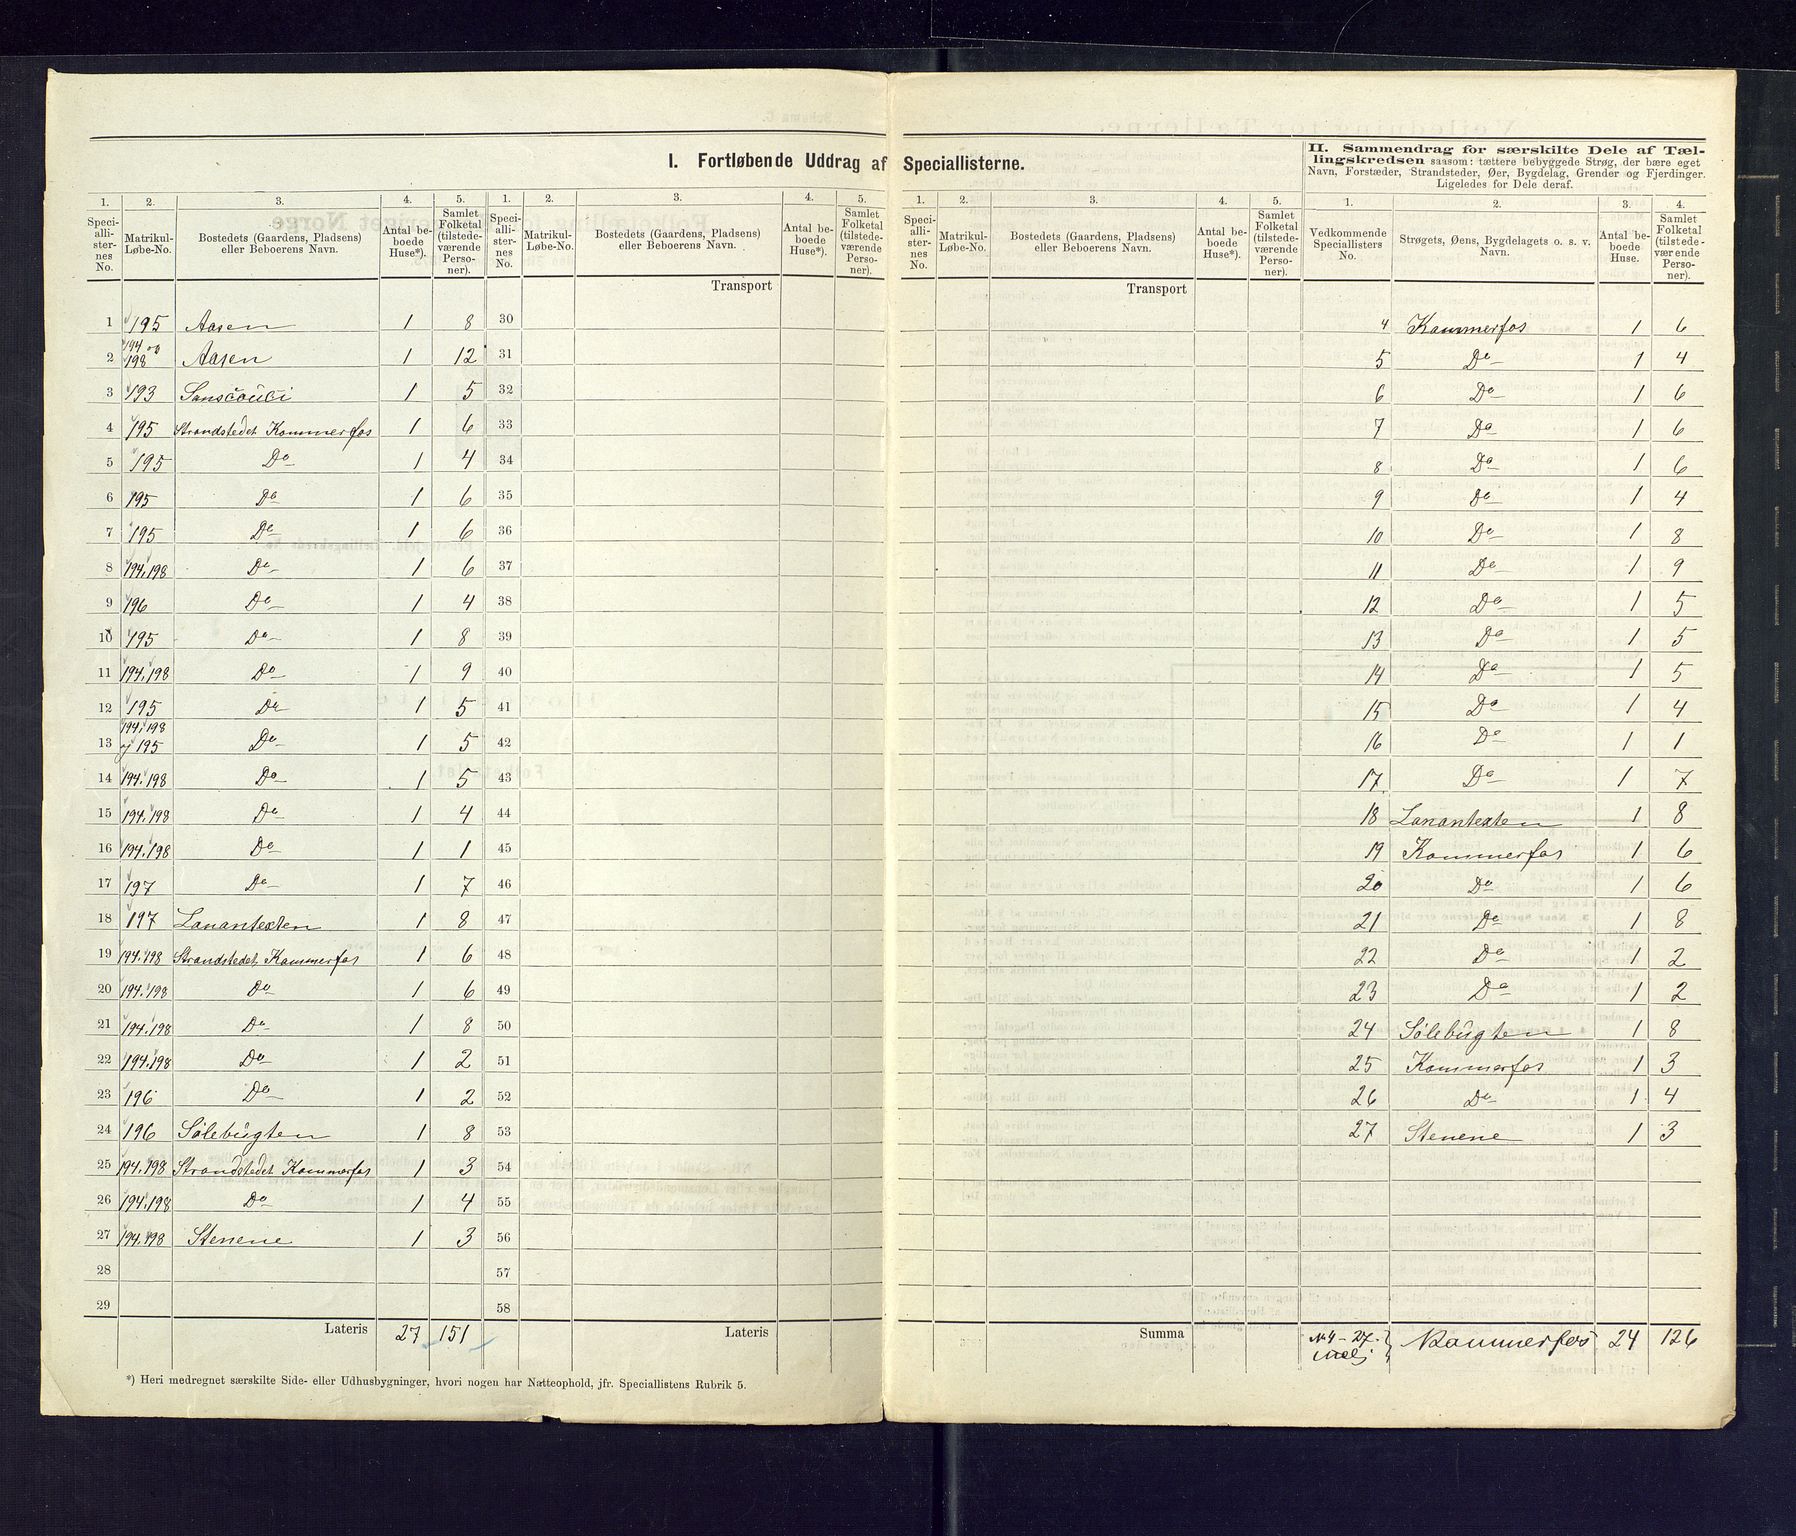 I. Fortløbende Uddrag af Speciallisterne.
1. 2. 3. 4. 5. 1. 2. 3. 4. 5.
Speciallisternes No. Matrikul-Løbe-No. Bostedets (Gaardens, Pladsens) eller Beboerens Navn. Antal beboede Huse*). Samlet Folketal (tilstedeværende Personer). Speciallisternes No. Matrikul-Løbe-No. Bostedets (Gaardens, Pladsens) eller Beboerens Navn. Antal beboede Huse*). Samlet Folketal (tilstedeværende Personer).
Transport
1 195 Aasen 1 8 30
2 194 og 198 Aasen 1 12 31
3 193 Sanscouci 1 5 32
4 195 Strandstedet Kammerfos 1 6 33
5 195 Do 1 4 34
6 195 Do 1 6 35
7 195 Do 1 6 36
8 194.198 Do 1 6 37
9 196 Do 1 4 38
10 195 Do 1 8 39
11 194.198 Do 1 9 40
12 195 Do 1 5 41
13 194.198 og 195 Do 1 5 42
14 194.198 Do 1 5 43
15 194.198 Do 1 4 44
16 194.198 Do 1 1 45
17 197 Do 1 7 46
18 197 Lanantexten 1 8 47
19 194.198 Strandstedet Kammerfos 1 6 48
20 194.198 Do 1 6 49
21 194.198 Do 1 8 50
22 194.198 Do 1 2 51
23 196 Do 1 2 52
24 196 Sölebugten 1 8 53
25 194.198 Strandstedet Kammerfos 1 3 54
26 194.198 Do 1 4 55
27 194.198 Stenene 1 3 56
28 57
29 58
Lateris 27 151 Lateris
*) Heri medregnet særskilte Side- eller Udhusbygninger, hvori nogen har Natteophold, jfr. Speciallistens Rubrik 5.
1. 2. 3. 4. 5.
Speciallisternes No. Matrikul-Løbe-No. Bostedets (Gaardens, Pladsens) eller Beboerens Navn. Antal beboede Huse*). Samlet Folketal (tilstedeværende Personer).
Transport
Summa
II. Sammendrag for særskilte Dele af Tæl-
lingskredsen saasom: tættere bebyggede Strøg, der bære eget
Navn, Forstæder, Strandsteder, Øer, Bygdelag, Grender og Fjerdinger.
Ligeledes for Dele deraf.
1. 2. 3. 4.
Vedkommende Speciallisters No. Strøgets, Øens, Bygdelagets o. s. v. Navn. Antal beboede Huse. Samlet Folketal (tilstedeværende Personer).
4 Kammerfos 1 6
5 Do 1 4
6 Do 1 6
7 Do 1 6
8 Do 1 6
9 Do 1 4
10 Do 1 8
11 Do 1 9
12 Do 1 5
13 Do 1 5
14 Do 1 5
15 Do 1 4
16 Do 1 1
17 Do 1 7
18 Lanantexten 1 8
19 Kammerfos 1 6
20 Do 1 6
21 Do 1 8
22 Do 1 2
23 Do 1 2
24 Sölebugten 1 8
25 Kammerfos 1 3
26 Do 1 4
27 Stenene 1 3
No 4 - 27. incl. Kammerfos 24 126